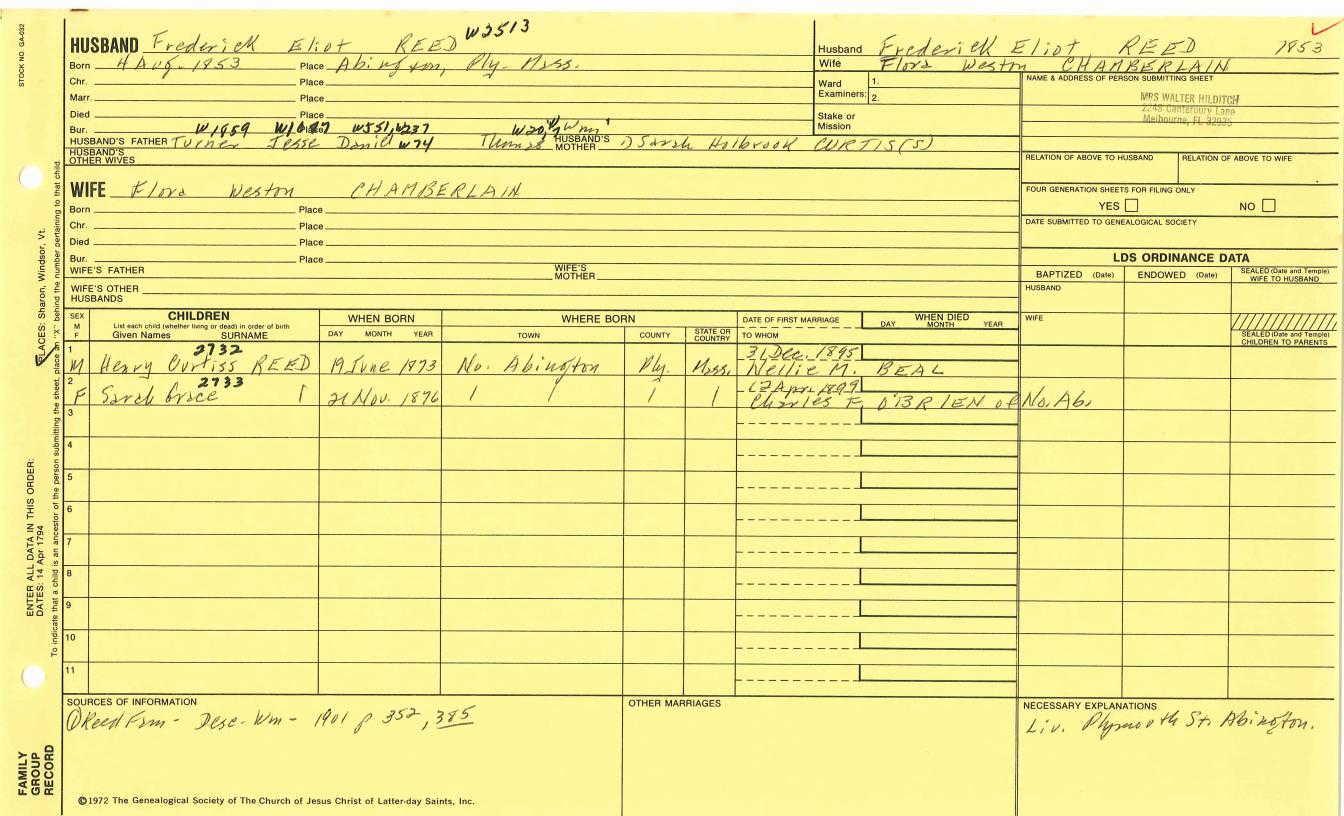 STOCK NO. GA-032
PLACES: Sharon, Windsor, Vt.
ENTER ALL DATA IN THIS ORDER:
DATES: 14 Apr 1794
To indicate that a child is an ancestor of the person submitting the sheet, place an "X" behind the number pertaining to that child.
FAMILY
GROUP
RECORD
W2513
HUSBAND Frederick Eliot REED
Born 4 Aug. 1853 Place Abington, Ply. Mass.
Chr. Place
Marr. Place
Died Place
Bur. Place
W1959 W551, W237
HUSBAND'S FATHER Turner Jesse Daniel W74 Thomas HUSBAND'S MOTHER Sarah Holbrook CURTIS(S)
HUSBAND'S OTHER WIVES
Husband Frederick Eliot REED 1853
Wife Flora Weston CHAMBERLAIN
Ward Examiners: 1.
2.
Stake or Mission
NAME & ADDRESS OF PERSON SUBMITTING SHEET
MRS WALTER HILDITCH
2248 Canterbury Lane
Melbourne, FL 32935
RELATION OF ABOVE TO HUSBAND RELATION OF ABOVE TO WIFE
FOUR GENERATION SHEETS FOR FILING ONLY
YES NO
DATE SUBMITTED TO GENEALOGICAL SOCIETY
WIFE Flora Weston CHAMBERLAIN
Born Place
Chr. Place
Died Place
Bur. Place
WIFE'S FATHER WIFE'S MOTHER
WIFE'S OTHER HUSBANDS
LDS ORDINANCE DATA
BAPTIZED (Date) ENDOWED (Date) SEALED (Date and Temple) WIFE TO HUSBAND
HUSBAND
WIFE
SEALED (Date and Temple) CHILDREN TO PARENTS
SEX M F
CHILDREN
List each child (whether living or dead) in order of birth
Given Names SURNAME
WHEN BORN
DAY MONTH YEAR
WHERE BORN
TOWN COUNTY STATE OR COUNTRY
DATE OF FIRST MARRIAGE
TO WHOM
WHEN DIED
DAY MONTH YEAR
1 2732 31 Dec. 1895
M Henry Curtiss REED 19 June 1873 No. Abington Ply. Mass. Nellie M. BEAL
2 2733 12 Apr. 1899
F Sarah Grace 21 Nov. 1876 Charles F. O'BRIEN of No. Ab.
3
4
5
6
7
8
9
10
11
SOURCES OF INFORMATION
① Reed Fam - Desc. Wm - 1901 p 352, 385
OTHER MARRIAGES
NECESSARY EXPLANATIONS
Liv. Plymouth St. Abington.
©1972 The Genealogical Society of The Church of Jesus Christ of Latter-day Saints, Inc.